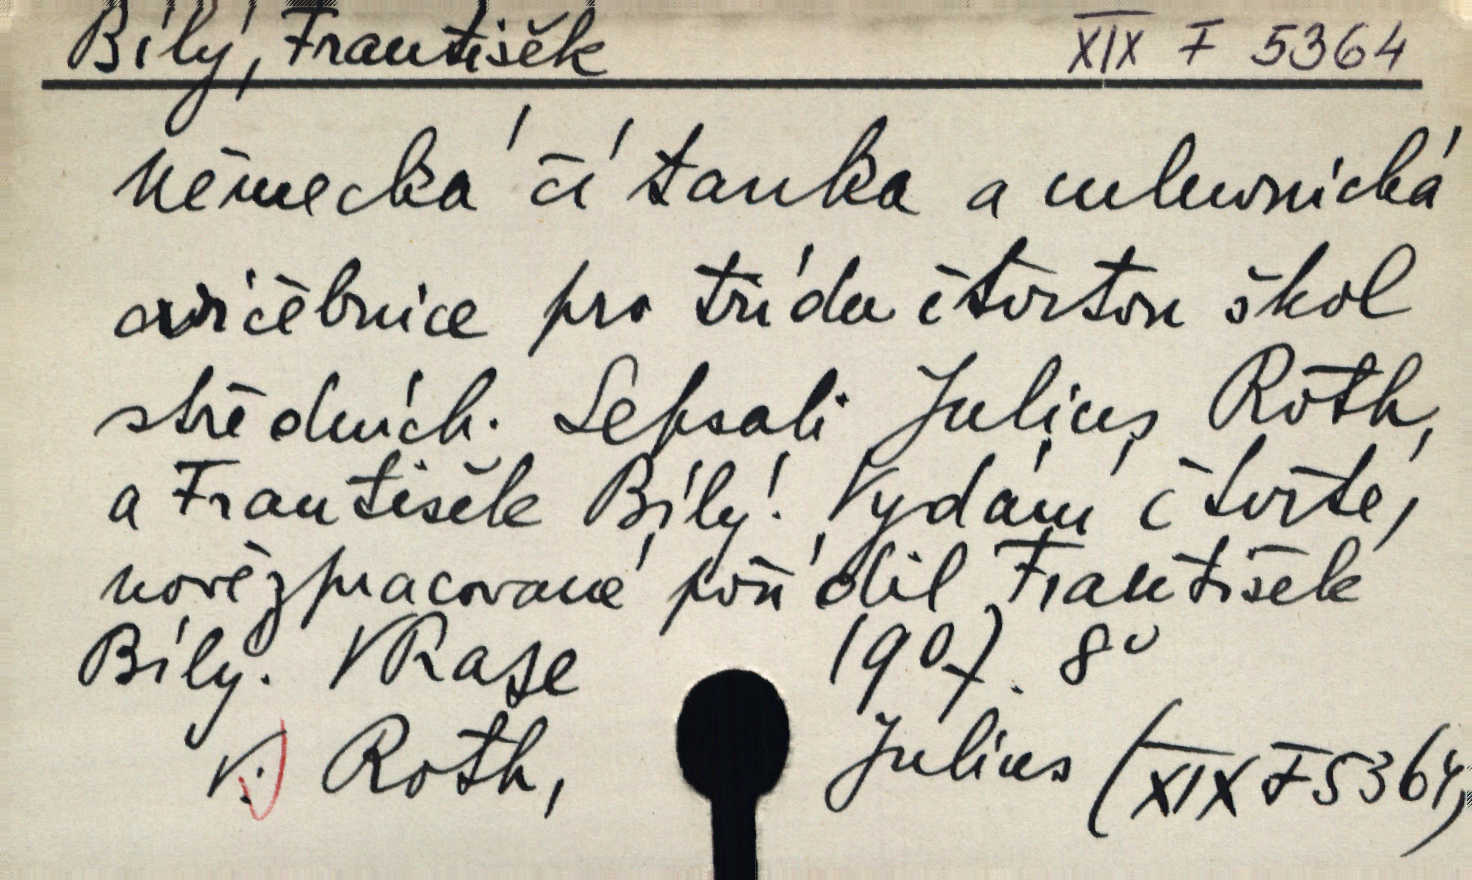 Bílý, František XIX F 5364
Německá čítanka a mluvnická
cvičebnice pro třídu čtvrtou škol
středních. Sepsali Julius Roth,
a František Bílý. Vydání čtvrté,
nově zpracované pořídil František
Bílý. V Praze 1907. 8°
v.) Roth, Julius (XIX F 5364)